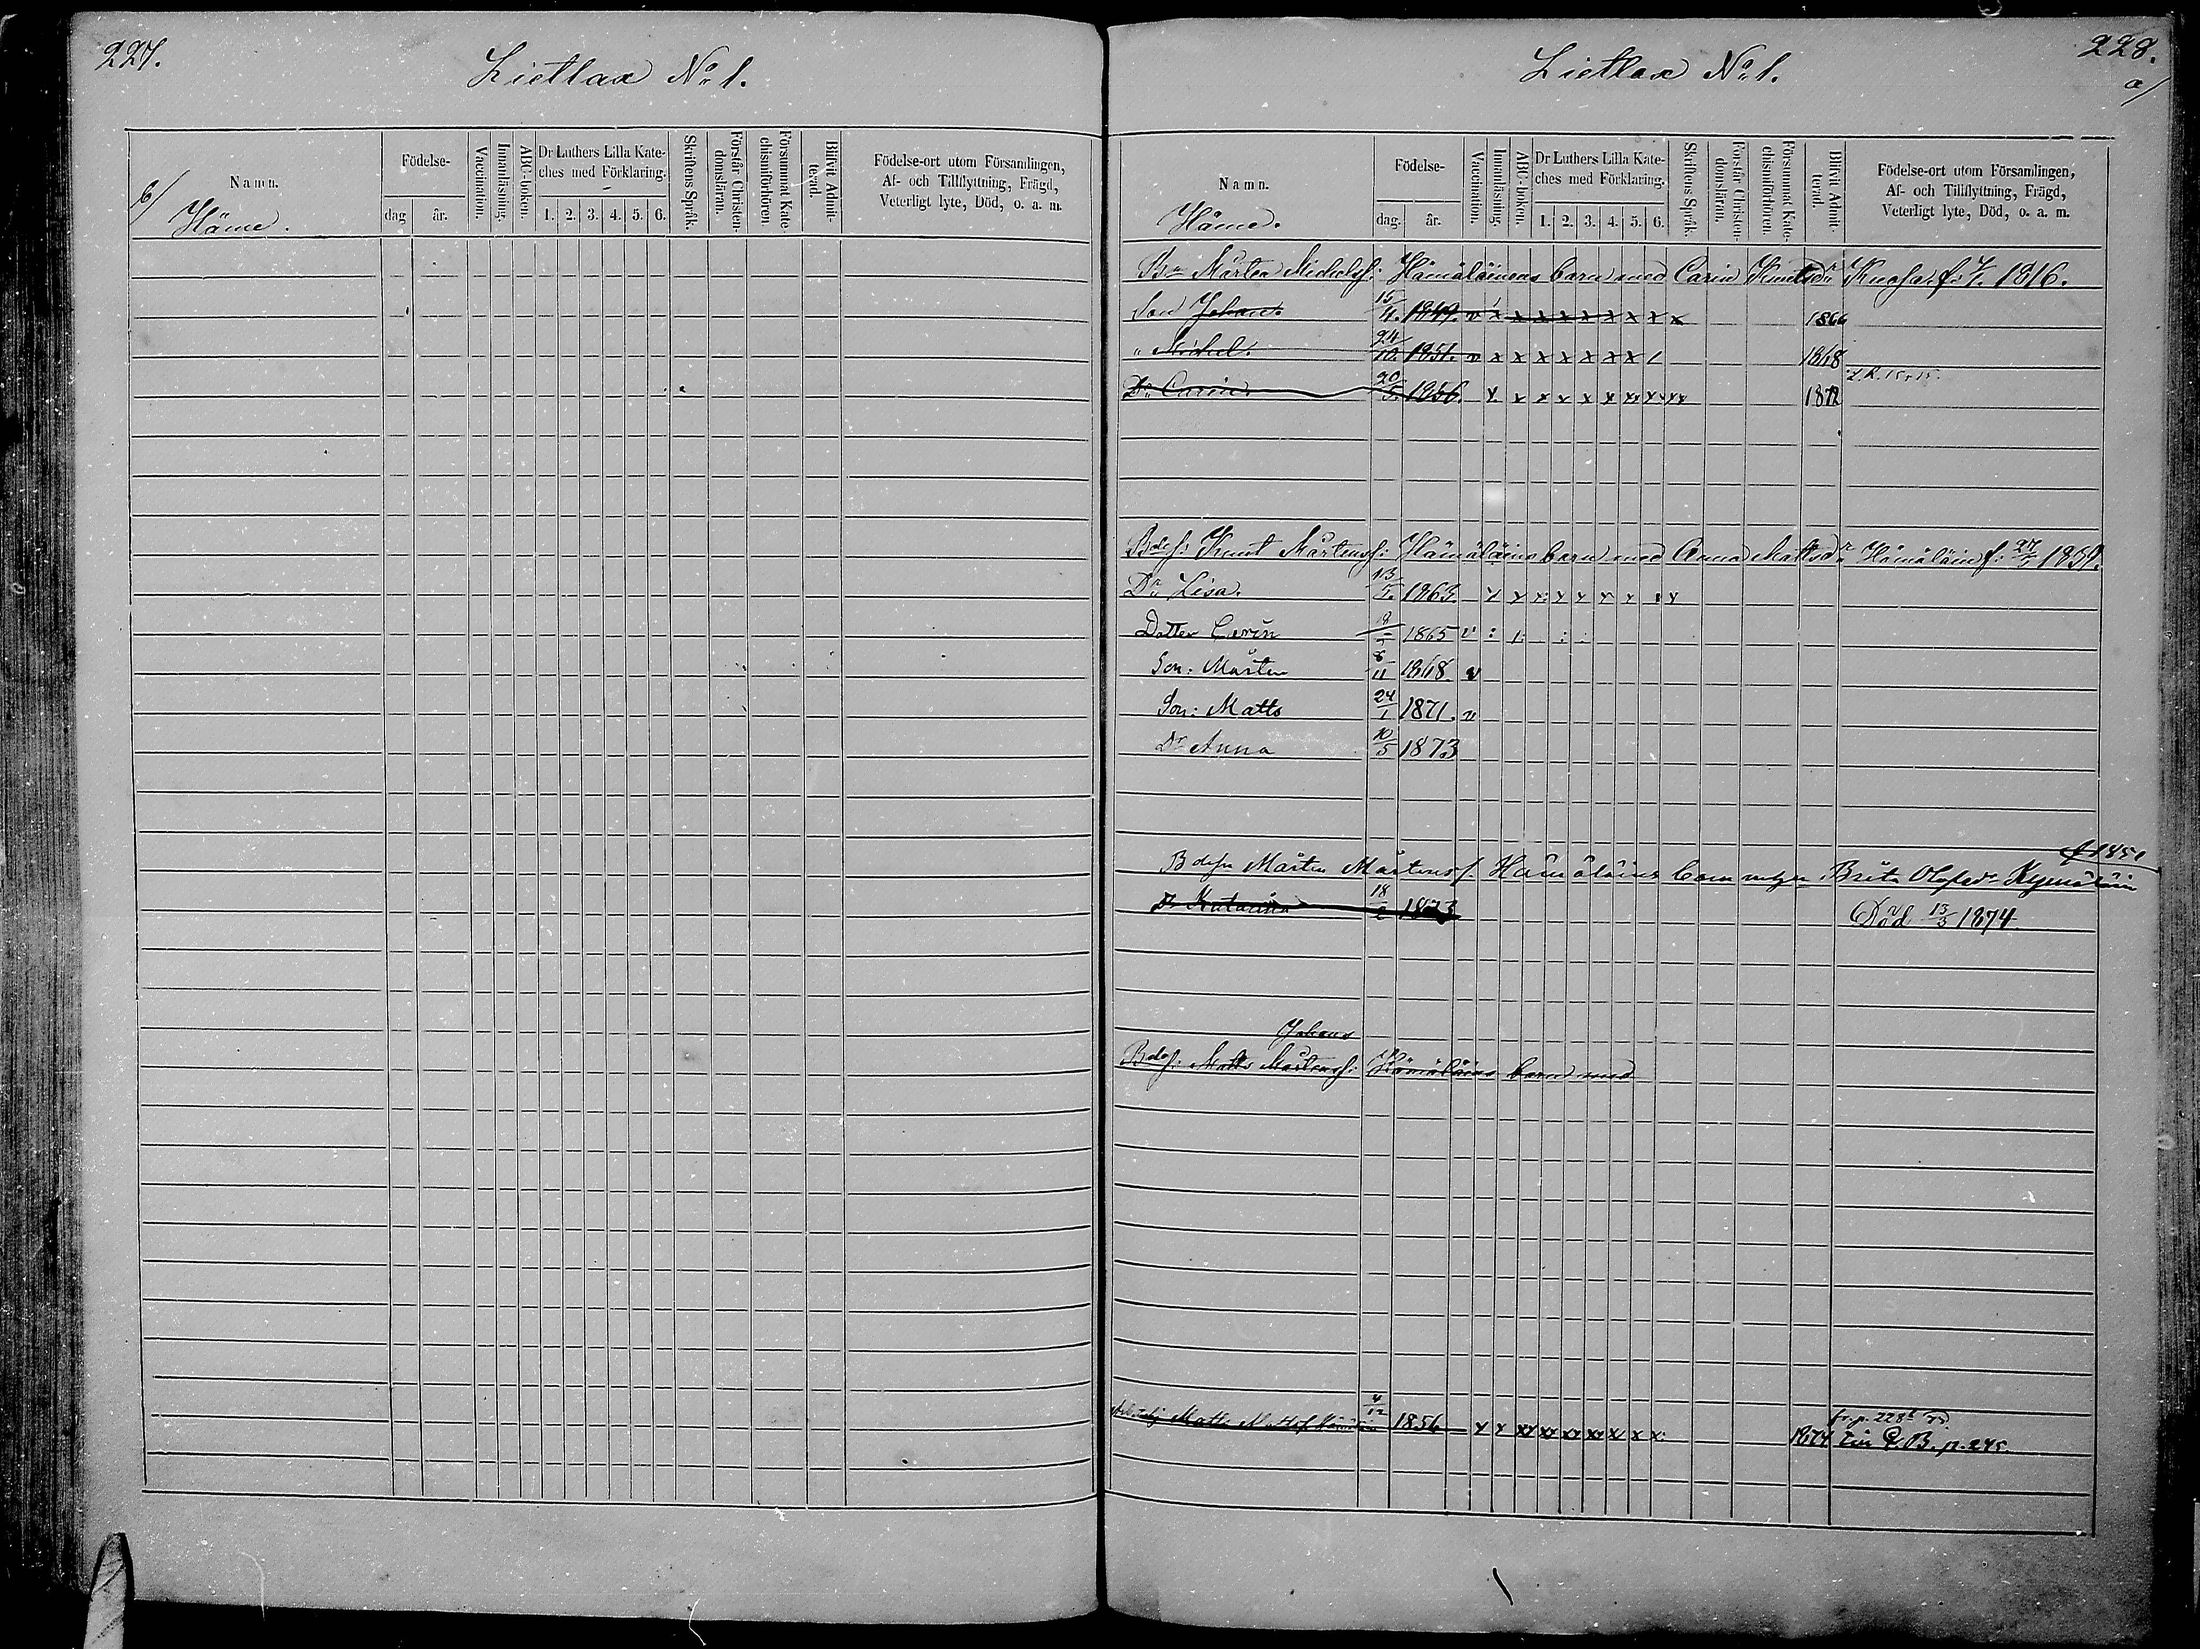 227.
Lietlax No 1.
Namn.
Födelse-
dag
år.
Vaccination.
Innanläsning.
ABC-boken.
Dr Luthers Lilla Kate-
ches med Förklaring.
1. 2. 3. 4. 5. 6.
Skriftens Språk.
Förstår Christen-
domsläran.
Försummat Kate-
chismiförhören.
Blifvit Admit-
terad.
Födelse-ort utom Församlingen,
Af- och Tillflyttning, Frägd,
Veterligt lyte, Död, o. a. m.
b/
Häme.
Lietlax No 1.
228.
a/
Namn.
Födelse-
dag.
år.
Vaccination.
Innanläsning.
ABC-boken.
Dr Luthers Lilla Kate-
ches med Förklaring.
1. 2. 3. 4. 5. 6.
Skriftens Språk.
Förstår Christen-
domsläran.
Försummat Kate-
chismiförhören.
Blifvit Admit-
terad.
Födelse-ort utom Församlingen,
Af- och Tillflyttning, Frägd,
Veterligt lyte, Död, o. a. m.
Häme.
Mårten Michelsf: Hämäläinens barn med Carin Knutsdr f: 1816.
Son Johan. 1849. v x x x x x x x x x 1866
" Michel. 24/10. 1851. v x x x x x x x 1868
Dr Carin. 20/5. 1856. x x x x x x xx x xx 1872
Bdes: Knut Mårtensf: Hämäläins barn med Anna Mattsdr Hämäläin f: 1839.
Dr Lisa. 13/5. 1863.
Dotter Carin 1865 v
Son: Mårten 1868 v
Son: Matts 24/1 1871. v
Dr Anna 10/5 1873
f 1850
Bdesn Mårten Mårtensf. Hämäläins barn m Brita Olofsdr Kymäläin
Dr Katarina 18/2 1873 Död 13/3 1874
Johans
Bdes: Matts Mårtensf: Hämäläins barn med
fr. p. 228
Matts Mattsf Hämäläin 4/12 1856 x x xx xx xx xx x x x 1874 p. 245.